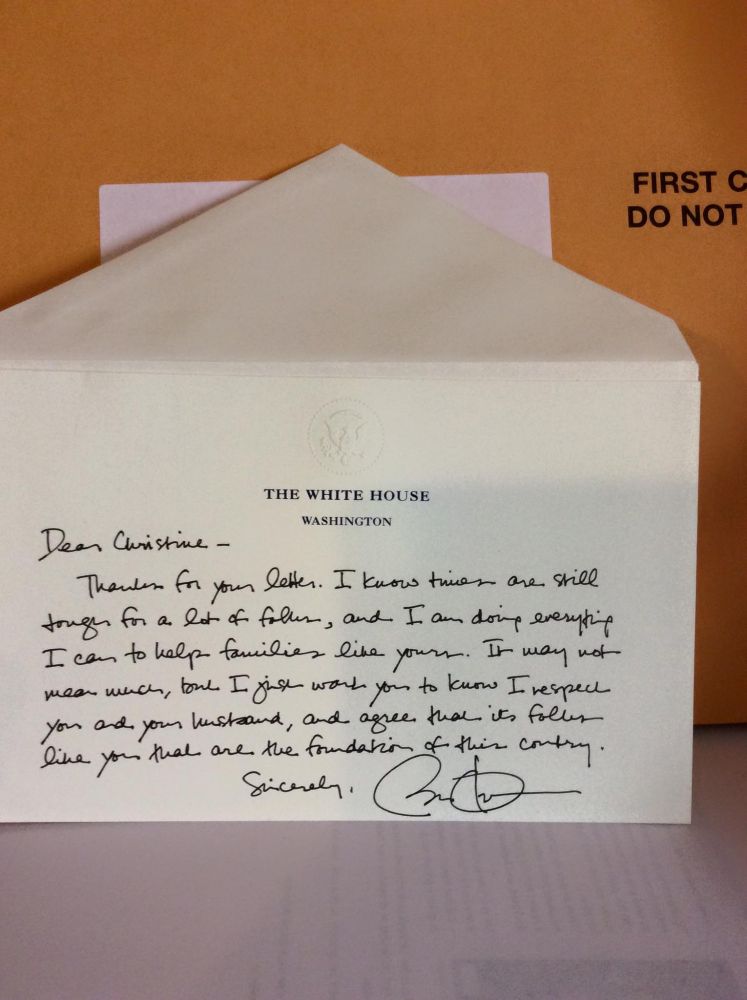 FIRST C
DO NOT
THE WHITE HOUSE
WASHINGTON
Dear Christine –
Thanks for your letter. I know times are still
tough for a lot of folks, and I am doing everything
I can to help families like yours. It may not
mean much, but I just want you to know I respect
you and your husband, and agree that its folks
like you that are the foundation of this contry.
Sincerely,